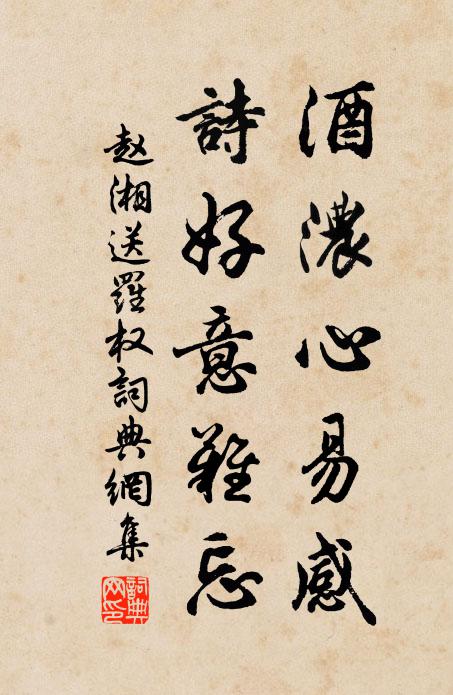 酒濃心易感
詩好意難忘
赵湘送羅权詞典網集
詞典網印